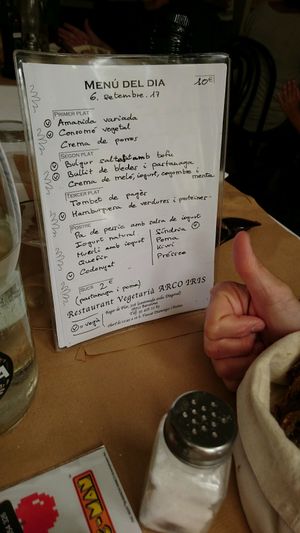 MENÚ DEL DIA 10€
6. Setembre. 17
PRIMER PLAT
Amanida variada
Consomé vegetal
Crema de porros
SEGON PLAT
Bulgur saltat amb tofu
Bullit de bledes i pastanaga
Crema de meló, iogurt, cogombre i menta
TERCER PLAT
Tombet de pagès
Hamburguesa de verdures i proteïnes
POSTRE
Pa de pessic amb salsa de iogurt
Iogurt natural
Muesli amb iogurt
Quefir
Codonyat
Síndria
Poma
Kiwi
Préssec
SUCS 2€
(pastanaga i poma)
Restaurant Vegetarià ARCO IRIS
= vegà
MAN